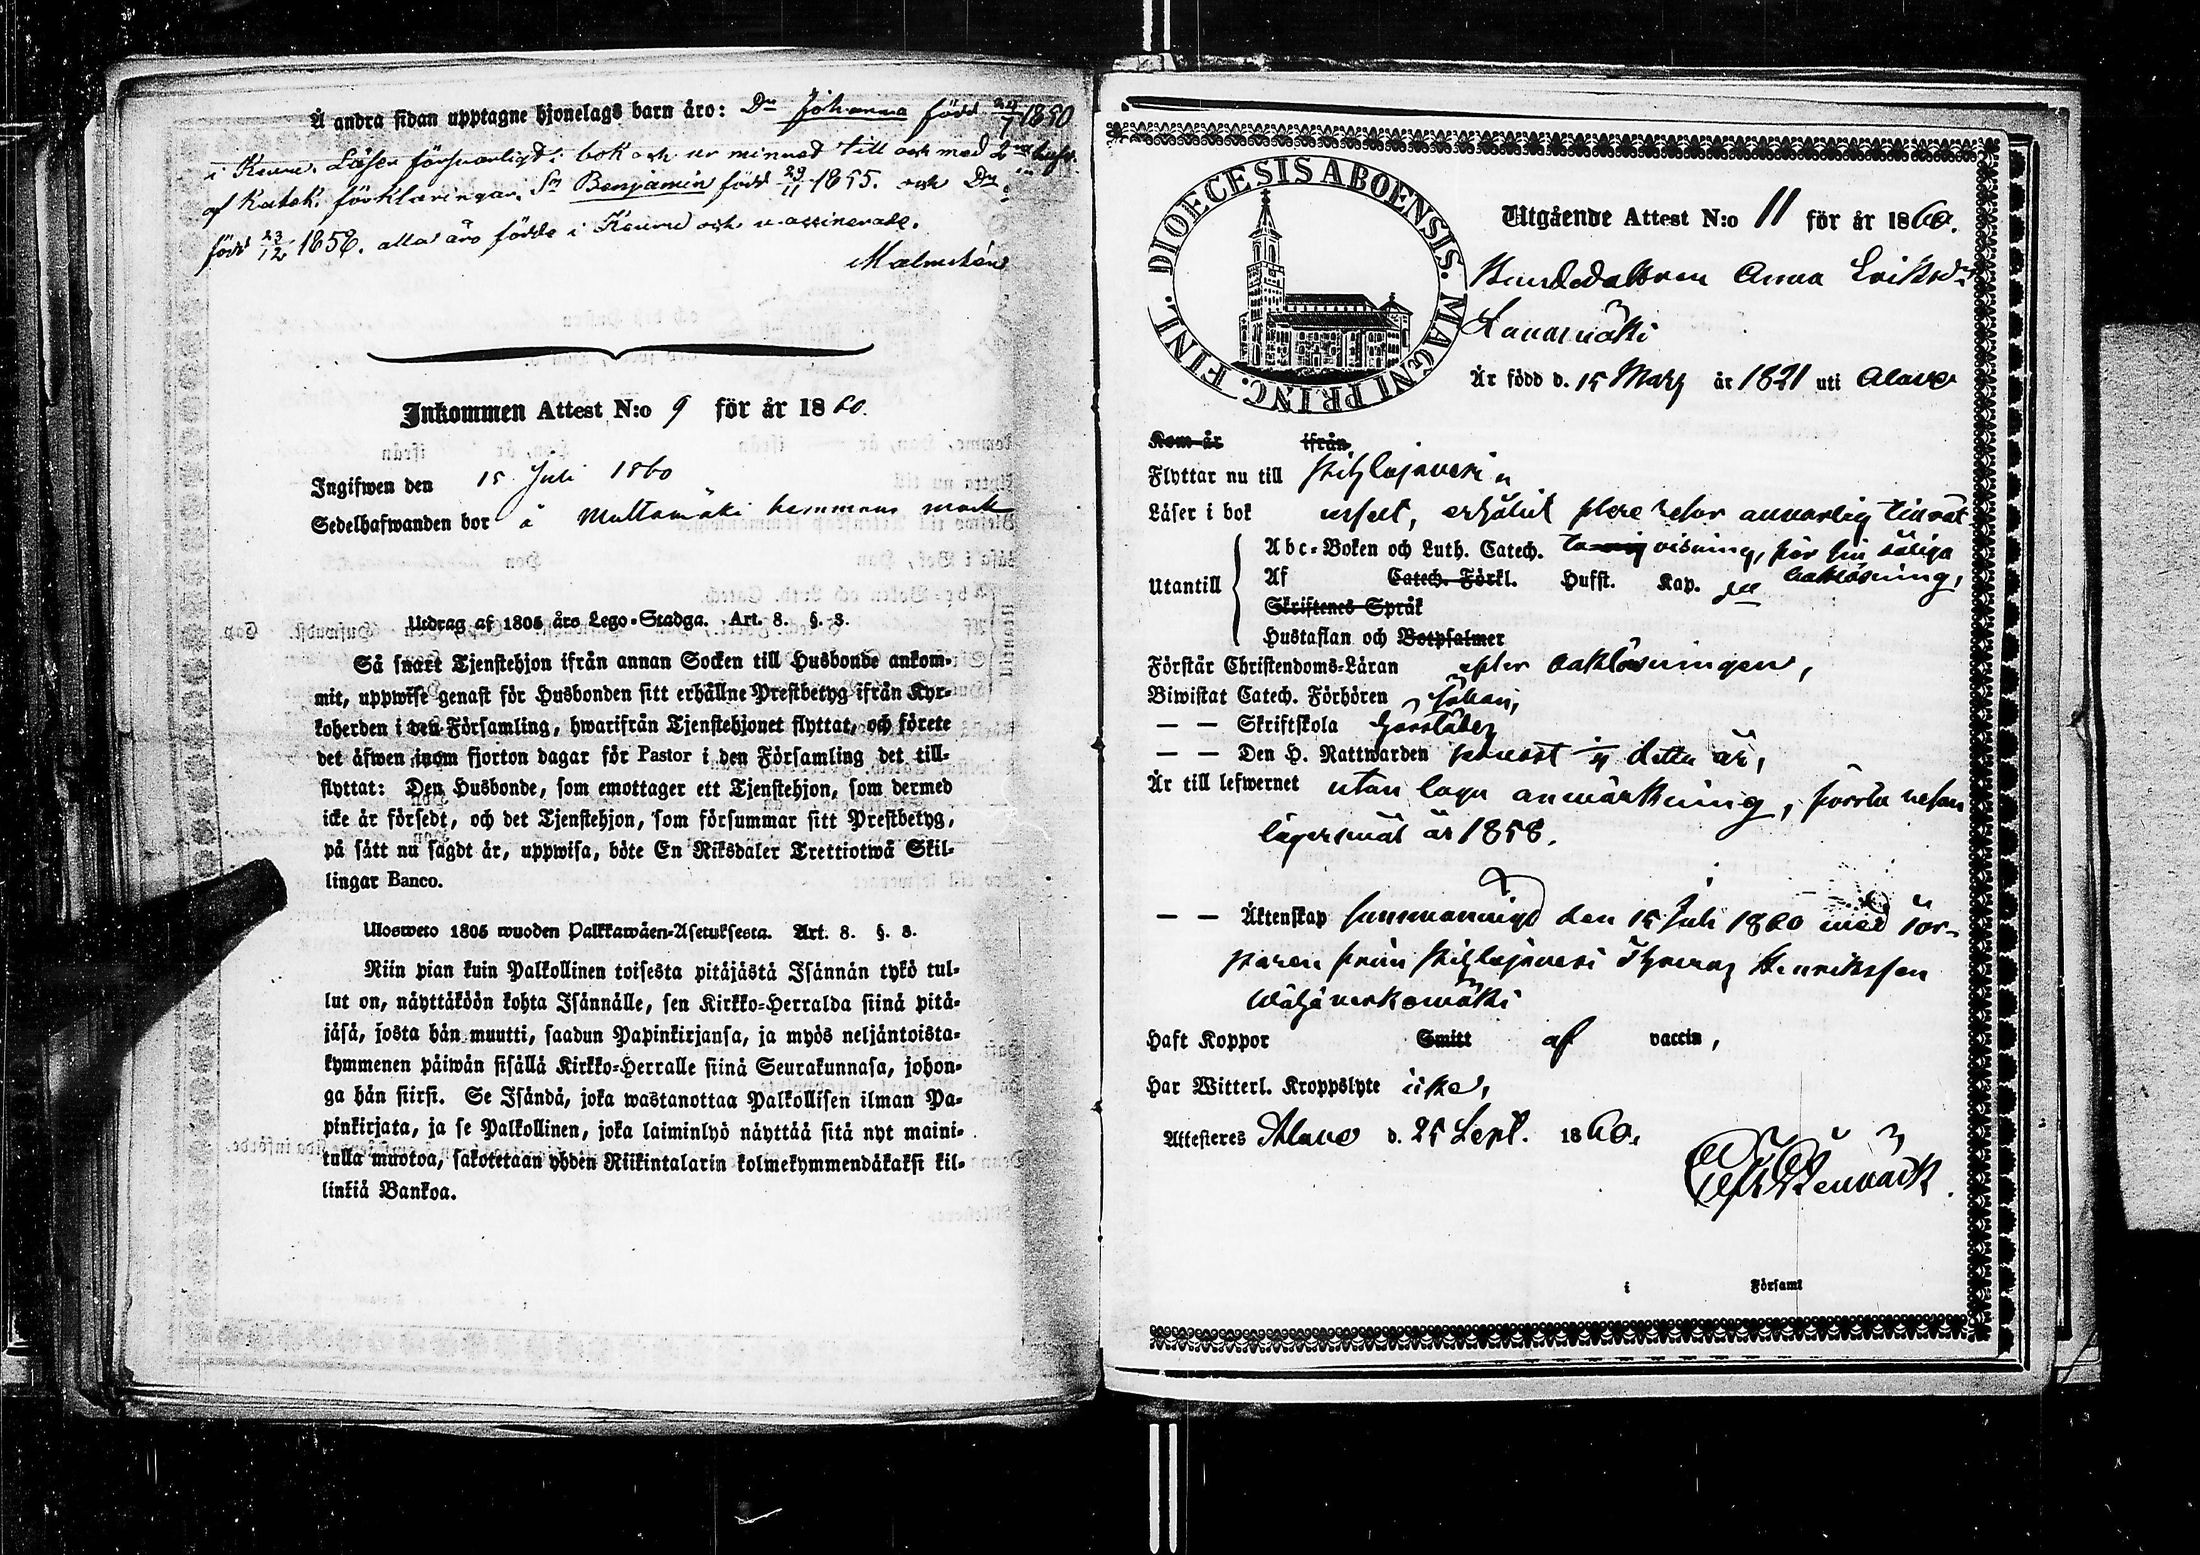 Å andra sidan upptagne hjonelags barn äro: Dr Johanna född 24/7 1850
i Keuru. Läser försvarligt i bok och ur minnet till och med 2
af Katek. förklaringar. Sn Benjamin född 29/11 1855. och Dr
född 23/12 1858. alla äro födde i Keuru och vaccinerade.
Malmstén
Inkommen Attest N:o 9 för år 1860.
Ingifwen den 15 Juli 1860
Sedelhafwanden bor å Multamäki hemmans mark
Utdrag af 1805 års Lego-Stadga. Art. 8. §. 3.
Så snart Tjenstehjon ifrån annan Socken till Husbonde ankom-
mit, uppwise genast för Husbonden sitt erhållne Prestbetyg ifrån Kyr-
koherden i den Församling, hwarifrån Tjenstehjonet flyttat, och förete
det äfwen inom fjorton dagar för Pastor i den Församling det till-
flyttat: Den Husbonde, som emottager ett Tjenstehjon, som dermed
icke är försedt, och det Tjenstehjon, som försummar sitt Prestbetyg,
på sätt nu sagdt är, uppwisa, böte En Riksdaler Trettiotwå Skil-
lingar Banco.
Ulosweto 1805 wuoden Palkkawäen-Asetuksesta. Art. 8. §. 3.
Niin pian kuin Palkollinen toisesta pitäjästä Isännän tykö tul-
lut on, näyttäköön kohta Isännälle, sen Kirkko-Herralda siinä pitä-
jäsä, josta hän muutti, saadun Papinkirjansa, ja myös neljäntoista-
kymmenen päiwän sisällä Kirkko-Herralle siinä Seurakunnasa, johon-
ga hän siirsi. Se Isändä, joka wastanottaa Palkollisen ilman Pa-
pinkirjata, ja se Palkollinen, joka laiminlyö näyttää sitä nyt maini-
tulla muotoa, sakotetaan yhden Riikintalarin kolmekymmendäkaksi kil-
linkiä Bankoa.
DIOECESIS ABOENSIS. MAGNI PRINC. FINL.
Utgående Attest N:o 11 för år 1860.
Bondedottren Anna Eriksdr
Lanamäki
Är född d. 15 Mars år 1821 uti Alavo
Kom år ifrån
Flyttar nu till Pihlajavesi
Läser i bok uselt, erhållit flere resor allvarlig tillrät
Abc-Boken och Luth. Catech. tavisning, för sin dåliga
Utantill Af Catech. Förkl. Husst. Kap. innanläsning,
Skriftenes Språk
Hustaflan och Botpsalmer
Förstår Christendoms-Läran efter innanläsningen,
Biwistat Catech. Förhören sällan,
— — Skriftskola försvarligt
— — Den H. Nattwarden senast detta år,
Är till lefwernet utan laga anmärkning, första resan
lägersmål år 1858.
— — Äktenskap sammanvigd den 15 Juli 1860 med Tor-
paren från Pihlajavesi Henriksson
Haft Koppor Smitt af vaccin,
Har Witterl. Kroppslyte icke,
Attesteres Alavo d. 25 Sept. 1860.
i Församl